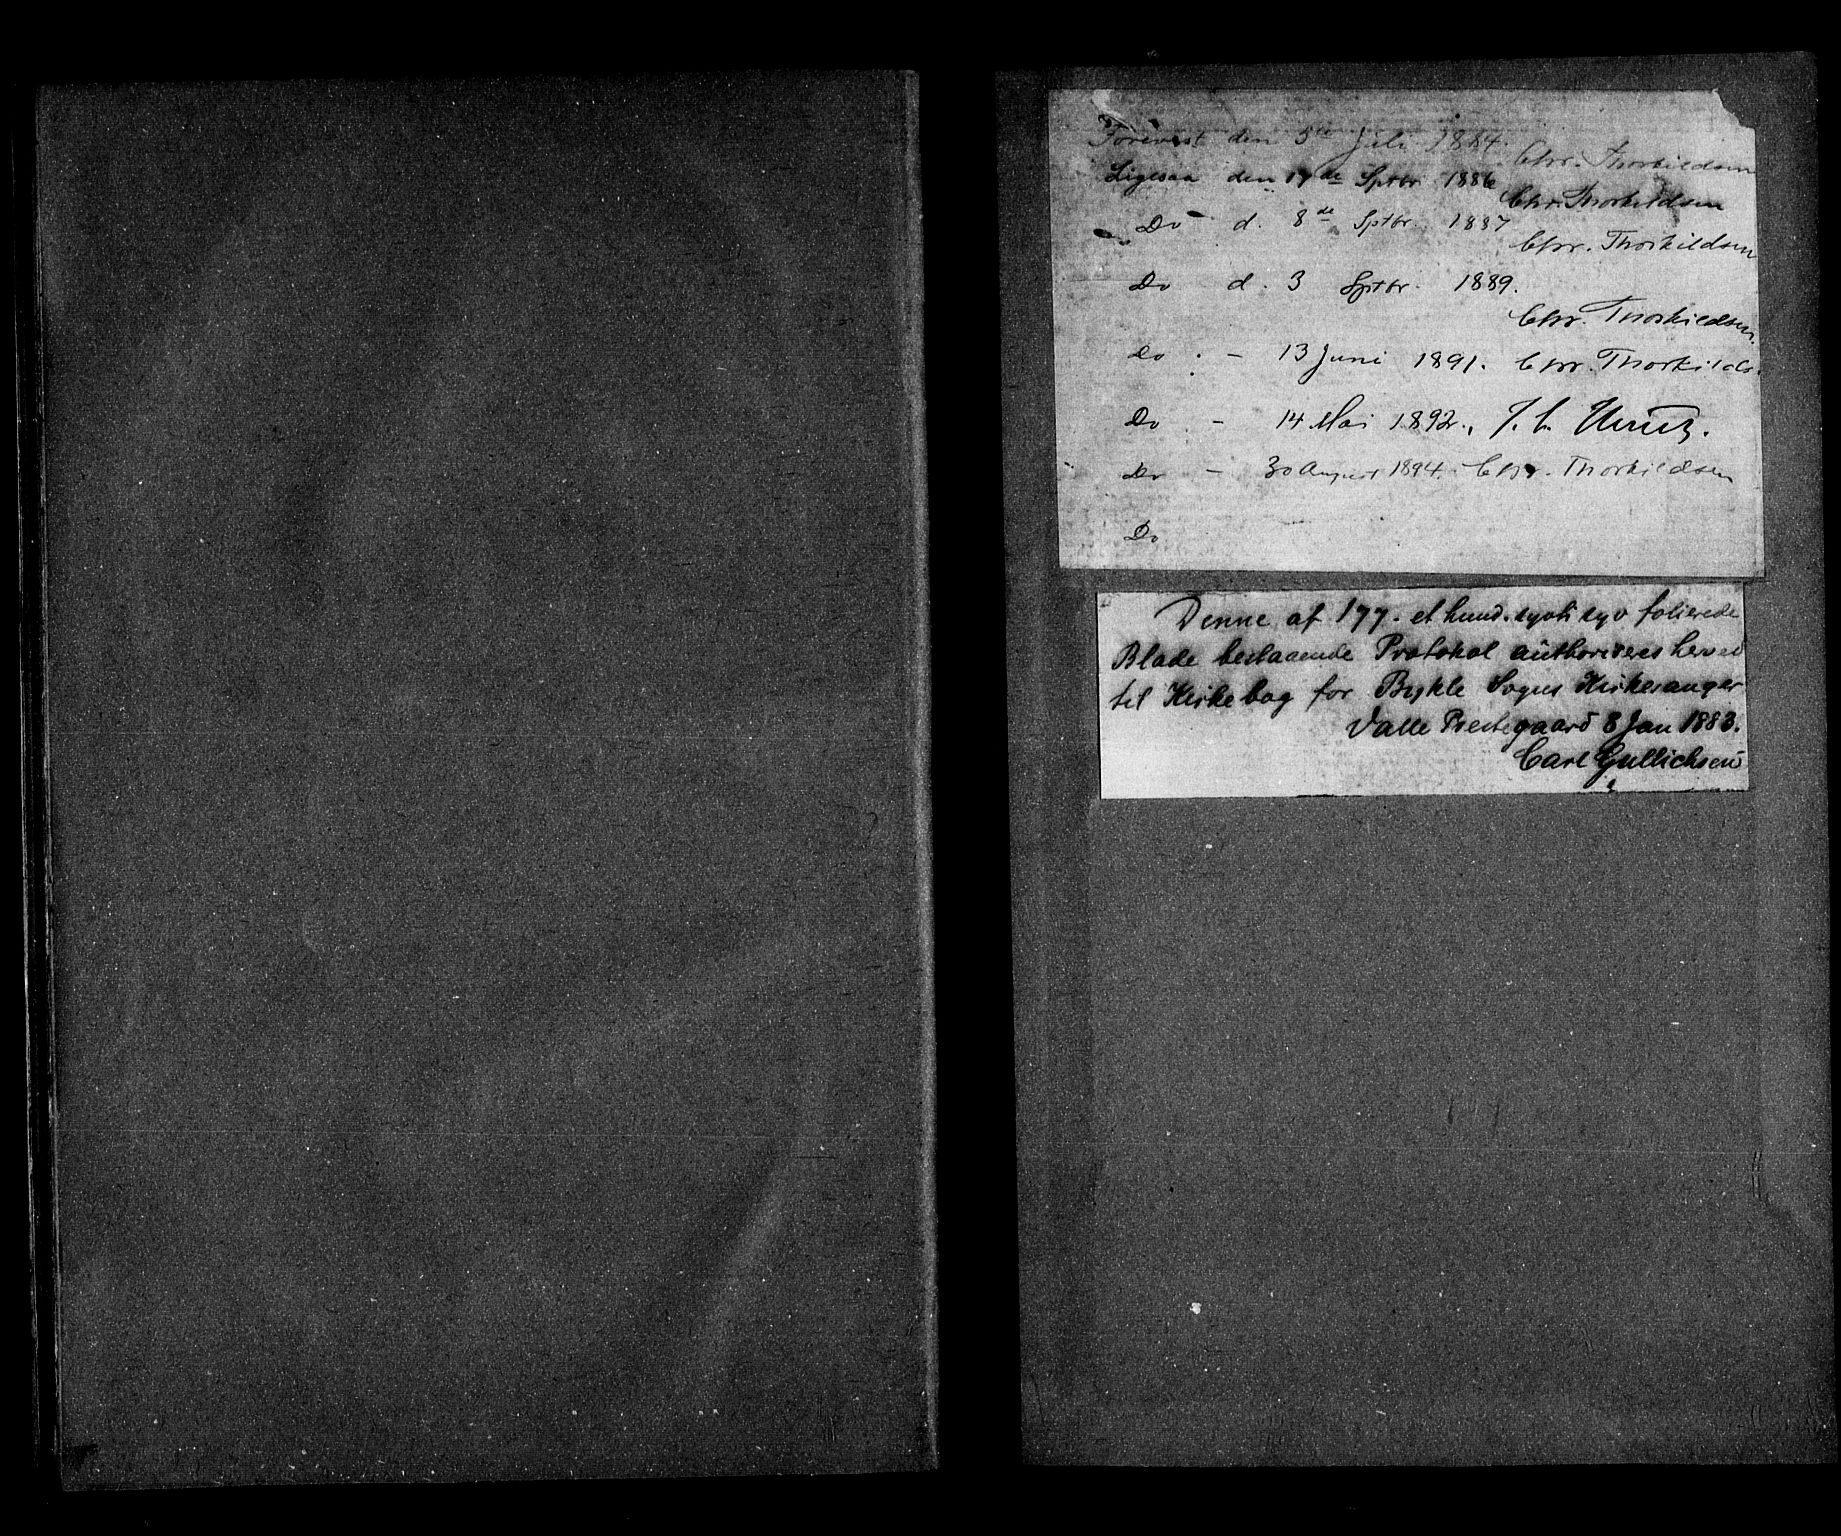 Forevist den 5te Juli 1884.
Chr. Thorkildsen
Ligesaa den 17de Sptbr 1886
Chr. Thorkildsen
Do d. 8de Sptbr. 1887
Chr. Thorkildsen
Do d. 3 Sptbr. 1889.
Chr. Thorkildsen.
Do. - 13 Juni 1891. Chr. Thorkilds.
Do - 14 Mai 1892., J. C.
Do - 30 August 1894. Chr. Thorkildsen
Do
Denne af 177 - et hund. sytti syv folierede
Blade bestaaende Protokol authoriseres herved
til Kirkebog for Bykle Sogns Kirkesanger
Valle Prestegaard 8 Jan 1883.
Carl Gullichsen